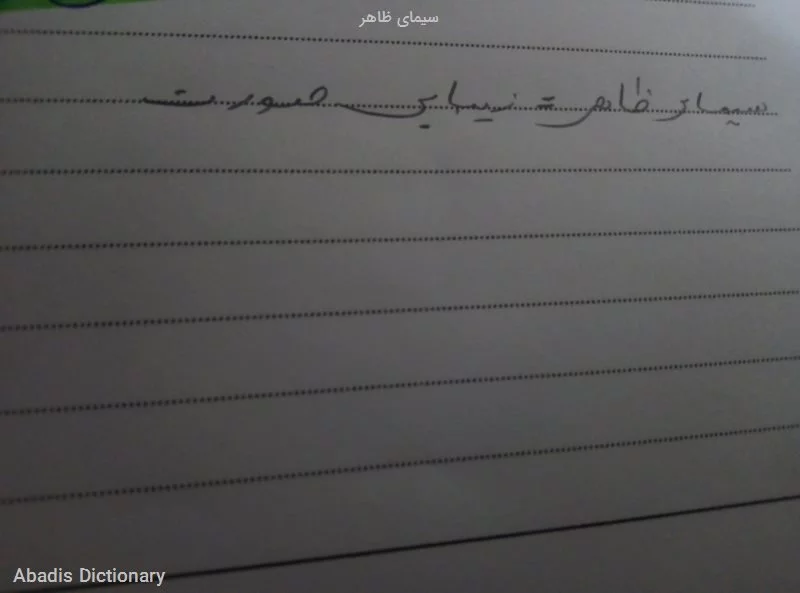 سیمای ظاهر
سیمای ظاهر = زیبایی صورت
Abadis Dictionary